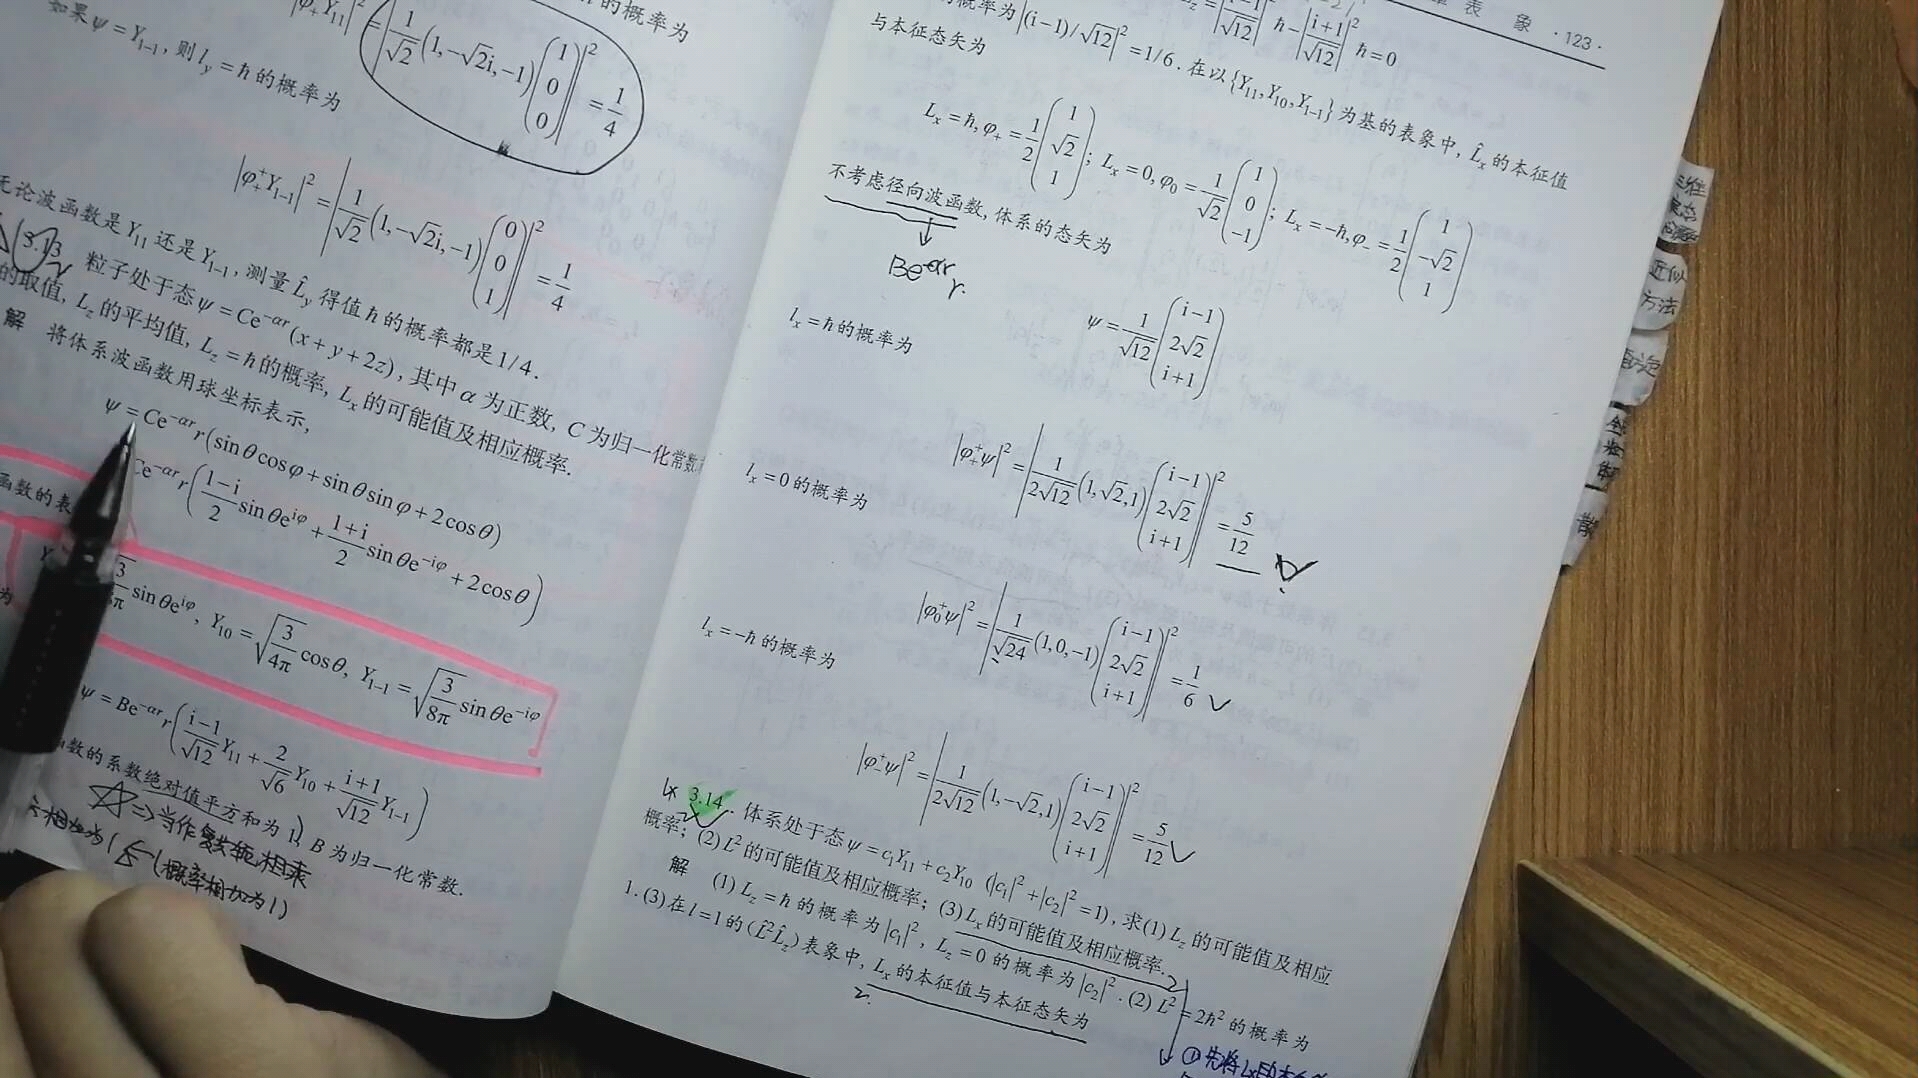 的概率为
如果ψ=Y₁₋₁, 则l_y=ħ的概率为
|φ₊⁺Y₁₁|²=|1/√2(1,-√2i,-1)(1 0 0)|²=1/4
|φ₊⁺Y₁₋₁|²=|1/√2(1,-√2i,-1)(0 0 1)|²=1/4
无论波函数是Y₁₁还是Y₁₋₁, 测量L̂_y得值ħ的概率都是1/4.
3.13 粒子处于态ψ=Ce^{-αr}(x+y+2z), 其中α为正数, C为归一化常数
的取值, L_z的平均值, L_z=ħ的概率, L_x的可能值及相应概率.
解 将体系波函数用球坐标表示,
ψ=Ce^{-αr}r(sinθcosφ+sinθsinφ+2cosθ)
Ce^{-αr}r((1-i)/2 sinθe^{iφ}+(1+i)/2 sinθe^{-iφ}+2cosθ)
函数的表
sinθe^{iφ}, Y₁₀=√(3/4π)cosθ, Y₁₋₁=√(3/8π)sinθe^{-iφ}
为
ψ=Be^{-αr}r((i-1)/√12 Y₁₁+2/√6 Y₁₀+(i+1)/√12 Y₁₋₁)
函数的系数绝对值平方和为1, B为归一化常数.
⇒当作
(概率相加为1)
章 表 象 ·123·
L_z=|(i-1)/√12|²ħ-|(i+1)/√12|²ħ=0
的概率为|(i-1)/√12|²=1/6. 在以{Y₁₁,Y₁₀,Y₁₋₁}为基的表象中, L̂_x的本征值
与本征态矢为
L_x=ħ,φ₊=1/2(1 √2 1); L_x=0,φ₀=1/√2(1 0 -1); L_x=-ħ,φ₋=1/2(1 -√2 1)
不考虑径向波函数, 体系的态矢为
Be^{-αr}r.
ψ=1/√12(i-1 2√2 i+1)
l_x=ħ的概率为
|φ₊⁺ψ|²=|1/(2√12)(1,√2,1)(i-1 2√2 i+1)|²=5/12
l_x=0的概率为
|φ₀⁺ψ|²=|1/√24(1,0,-1)(i-1 2√2 i+1)|²=1/6
l_x=-ħ的概率为
|φ₋⁺ψ|²=|1/(2√12)(1,-√2,1)(i-1 2√2 i+1)|²=5/12
3.14 体系处于态ψ=c₁Y₁₁+c₂Y₁₀ (|c₁|²+|c₂|²=1), 求(1)L_z的可能值及相应
概率; (2)L²的可能值及相应概率; (3)L_x的可能值及相应概率.
解 (1)L_z=ħ的概率为|c₁|², L_z=0的概率为|c₂|². (2)L²=2ħ²的概率为
1.(3)在l=1的(L̂²L̂_z)表象中, L_x的本征值与本征态矢为
①先将Lx的本
近似
方法
散